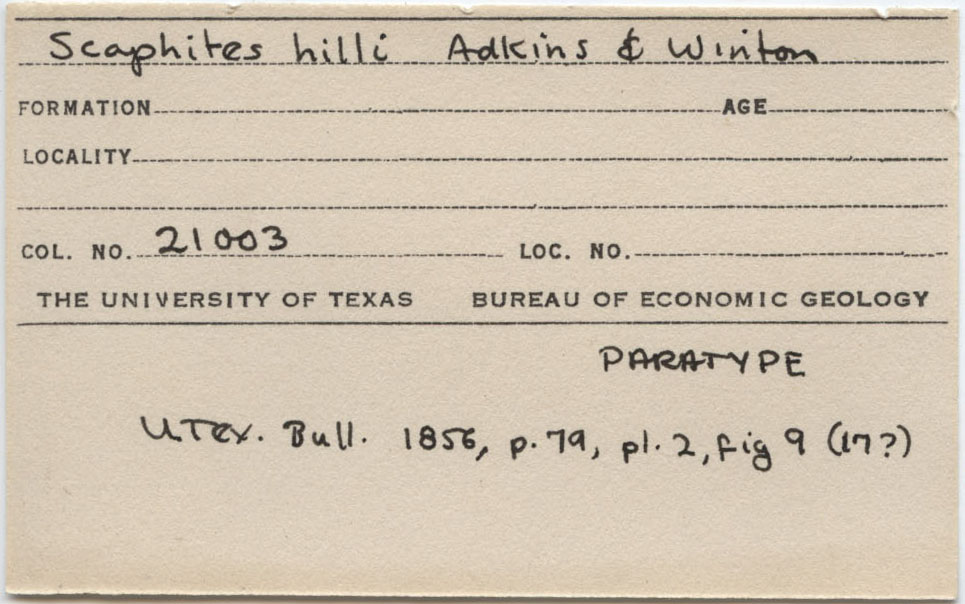 Scaphites hilli Adkins & Winton
FORMATION AGE
LOCALITY
COL. NO. 21003 LOC. NO.
THE UNIVERSITY OF TEXAS BUREAU OF ECONOMIC GEOLOGY
PARATYPE
U.Tex. Bull. 1856, p. 79, pl. 2, fig 9 (17?)